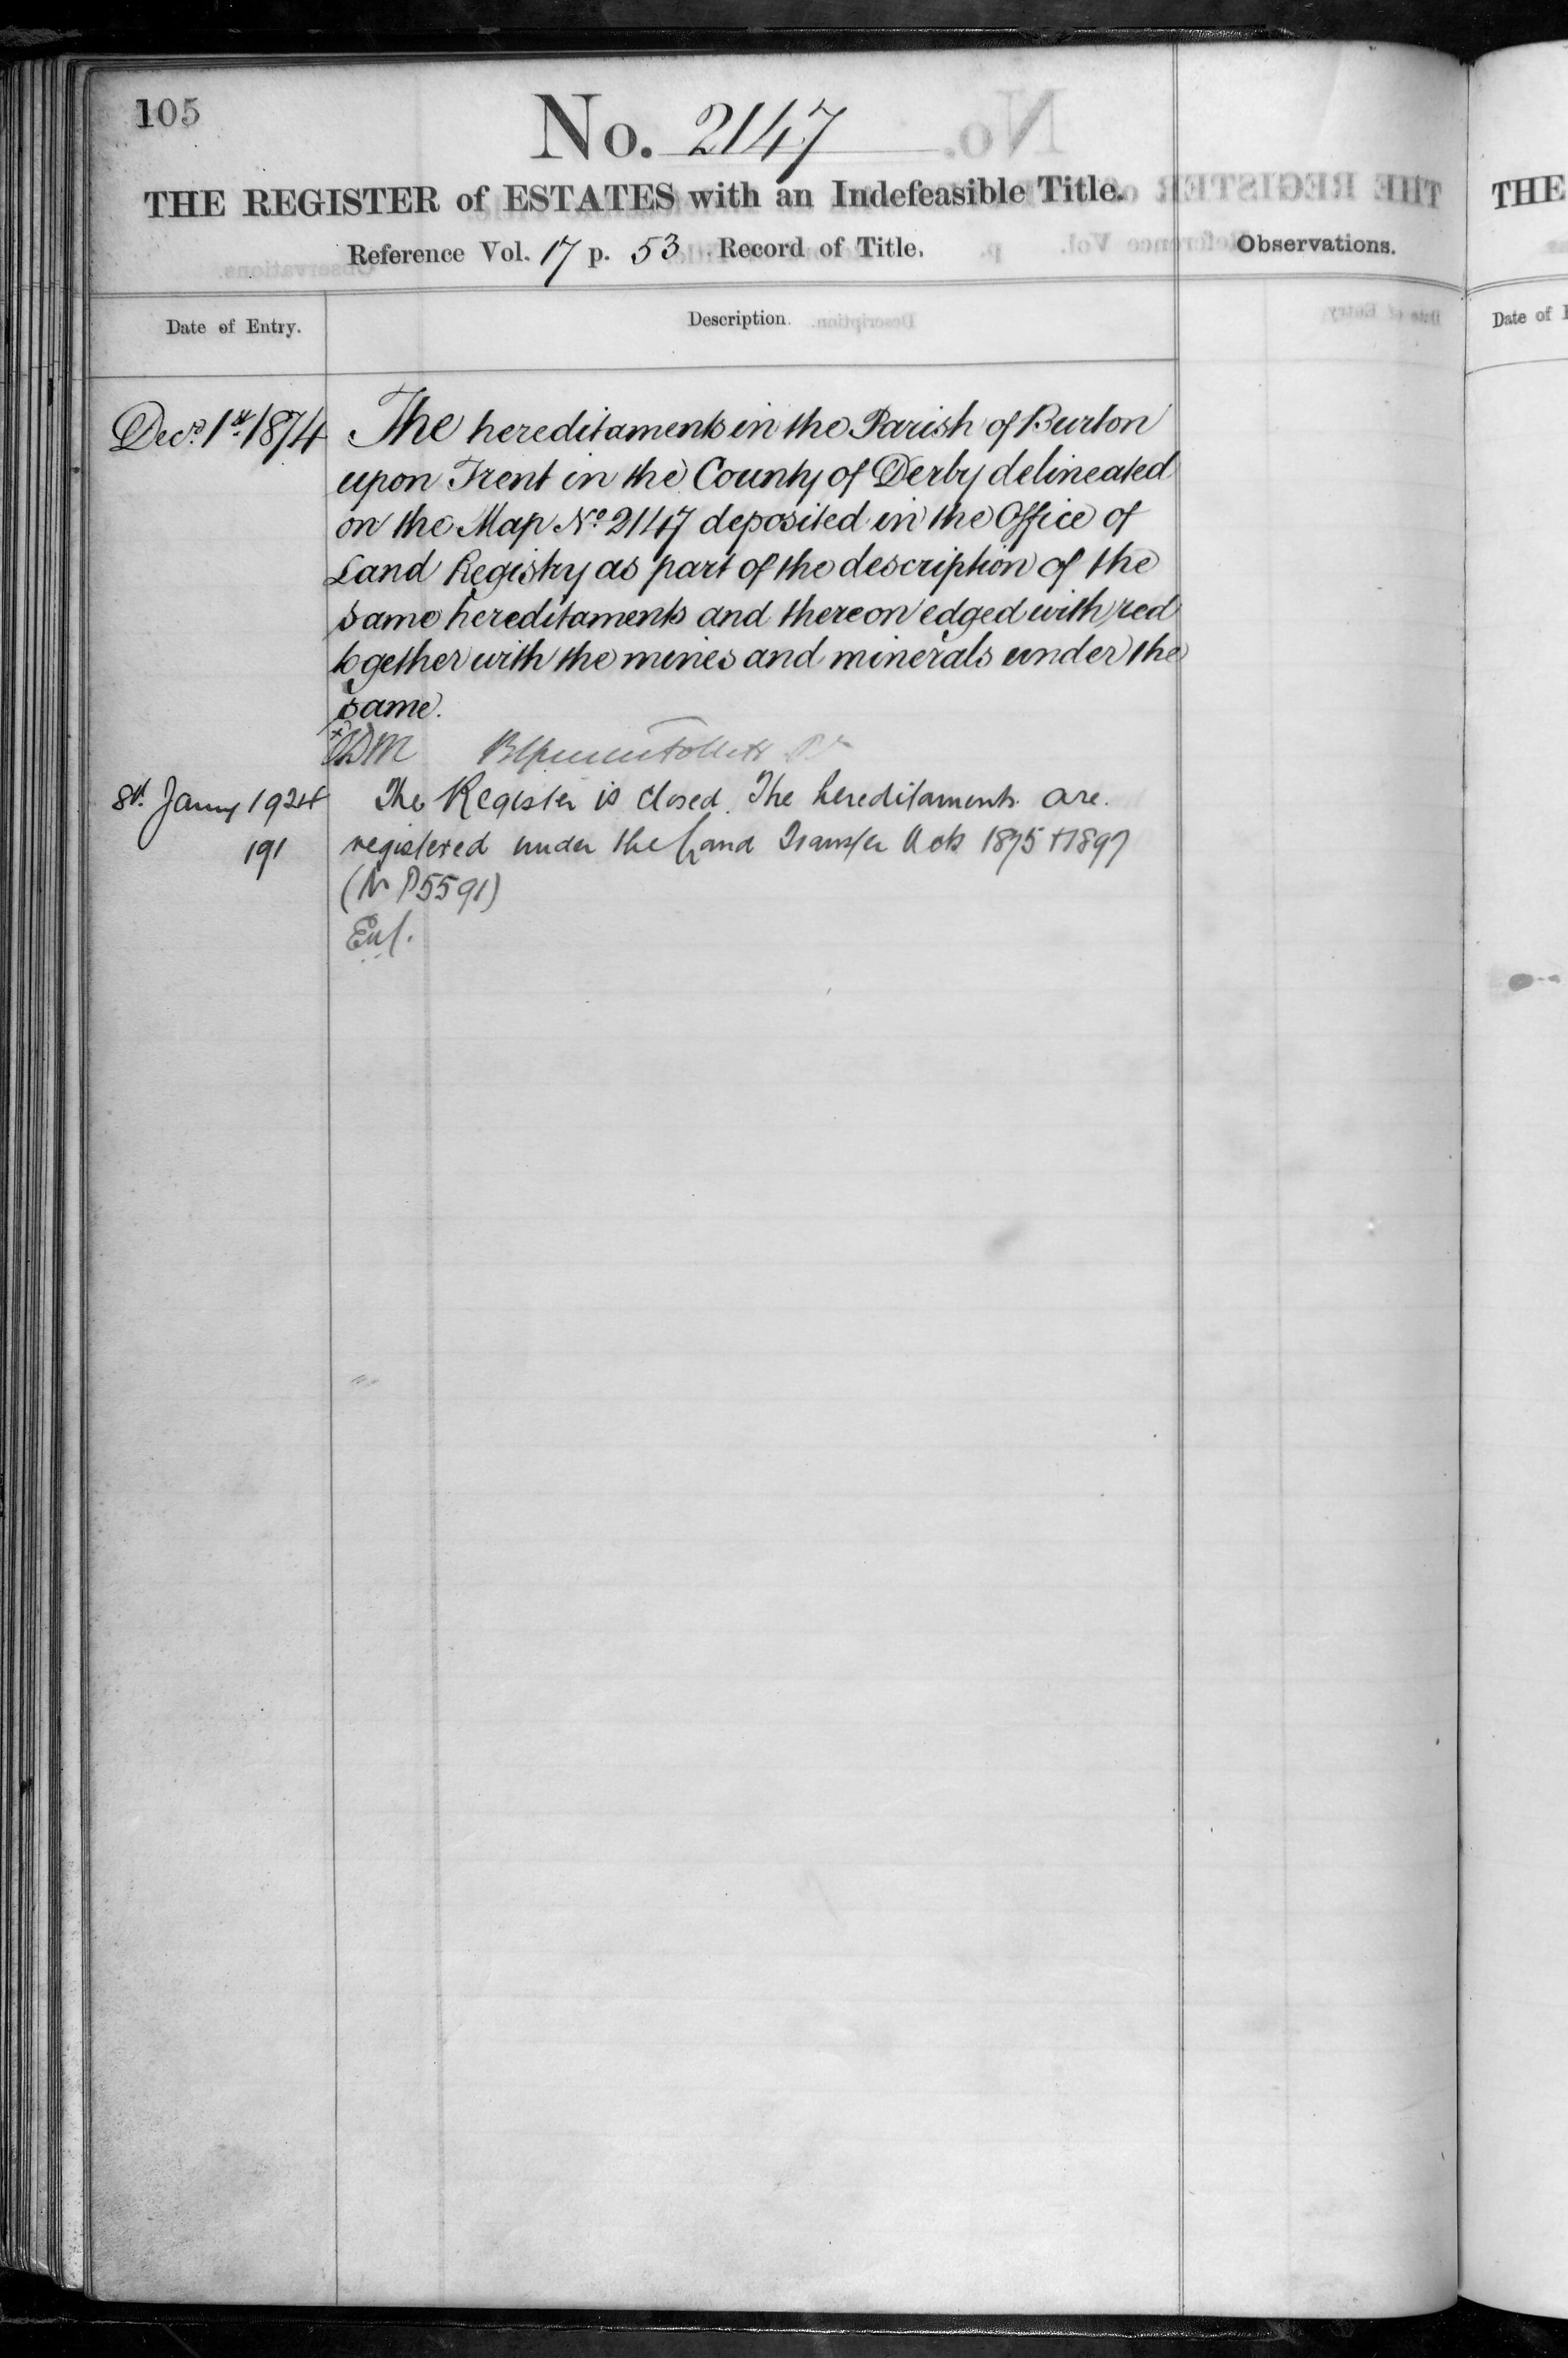 105
No. 2147
THE REGISTER of ESTATES with an Indefeasible Title.
Reference Vol. 17 p. 53 Record of Title.
Observations.
Date of Entry.
Description.
Decr. 1st 1874
The hereditaments in the Parish of Burton
upon Trent in the County of Derby delineated
on the Map No 2147 deposited in the Office of
Land Registry as part of the description of the
same hereditaments and thereon edged with red
together with the mines and minerals under the
same.
8th Janry 1924
The Register is closed. The hereditaments are
191
registered under the Land Transfer Acts 1875 & 1897
(No P5591)
THE
Date of